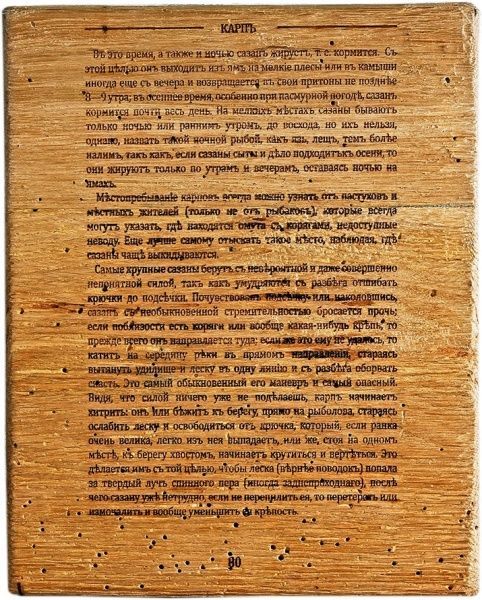 КАРПЪ
Въ это время, а также и ночью сазанъ жируетъ, т. е. кормится. Съ
этой цѣлью онъ выходитъ изъ ямъ на мелкіе плесы или въ камыши
иногда еще съ вечера и возвращается въ свои притоны не позднѣе
8—9 утра; въ осеннее время, особенно при пасмурной погодѣ, сазанъ
кормится почти весь день. На мелкихъ мѣстахъ сазаны бываютъ
только ночью или раннимъ утромъ, до восхода, но ихъ нельзя,
однако, назвать такой ночной рыбой, какъ язь, лещъ, тѣмъ болѣе
налимъ, такъ какъ, если сазаны сыты и дѣло подходитъ къ осени, то
они жируютъ только по утрамъ и вечерамъ, оставаясь ночью на
ямахъ.
Мѣстопребываніе карповъ всегда можно узнать отъ пастуховъ и
мѣстныхъ жителей (только не отъ рыбаковъ), которые всегда
могутъ указать, гдѣ находятся омута съ корягами, недоступные
неводу. Еще лучше самому отыскать такое мѣсто, наблюдая, гдѣ
сазаны чаще выкидываются.
Самые крупные сазаны берутъ съ невѣроятной и даже совершенно
непонятной силой, такъ какъ умудряются съ разбѣга отшибать
крючки до подсѣчки. Почувствовавъ подсѣчку или наколовшись,
сазанъ съ необыкновенной стремительностью бросается прочь;
если поблизости есть коряги или вообще какая-нибудь крѣпь, то
прежде всего онъ направляется туда; если же это ему не удалось, то
катитъ на середину рѣки въ прямомъ направленіи, стараясь
вытянуть удилище и леску въ одну линію и съ разбѣга оборвать
снасть. Это самый обыкновенный его маневръ и самый опасный.
Видя, что силой ничего уже не подѣлаешь, карпъ начинаетъ
хитрить: онъ или бѣжитъ къ берегу, прямо на рыболова, стараясь
ослабить леску и освободиться отъ крючка, который, если ранка
очень велика, легко изъ нея выпадаетъ, или же, стоя на одномъ
мѣстѣ, къ берегу хвостомъ, начинаетъ крутиться и вертѣться. Это
дѣлается имъ съ той цѣлью, чтобы леска (вѣрнѣе поводокъ) попала
за твердый лучъ спинного пера (иногда заднепроходнаго), послѣ
чего сазану уже нетрудно, если не перепилить ея, то перетереть или
измочалить и вообще уменьшить ея крѣпость.
80